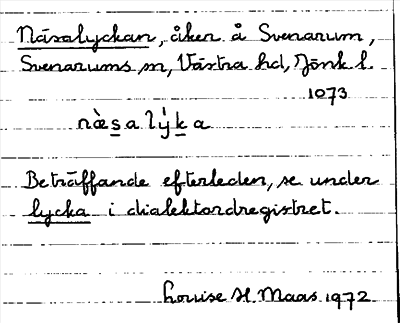 Näsalyckan, åker å Svenarum,
Svenarums sn, Västra hd, Jönk. l.
1073
nὰsalýka
Beträffande efterleden, se under
lycka i dialektordregistret.
Louise H. Maas 1972.